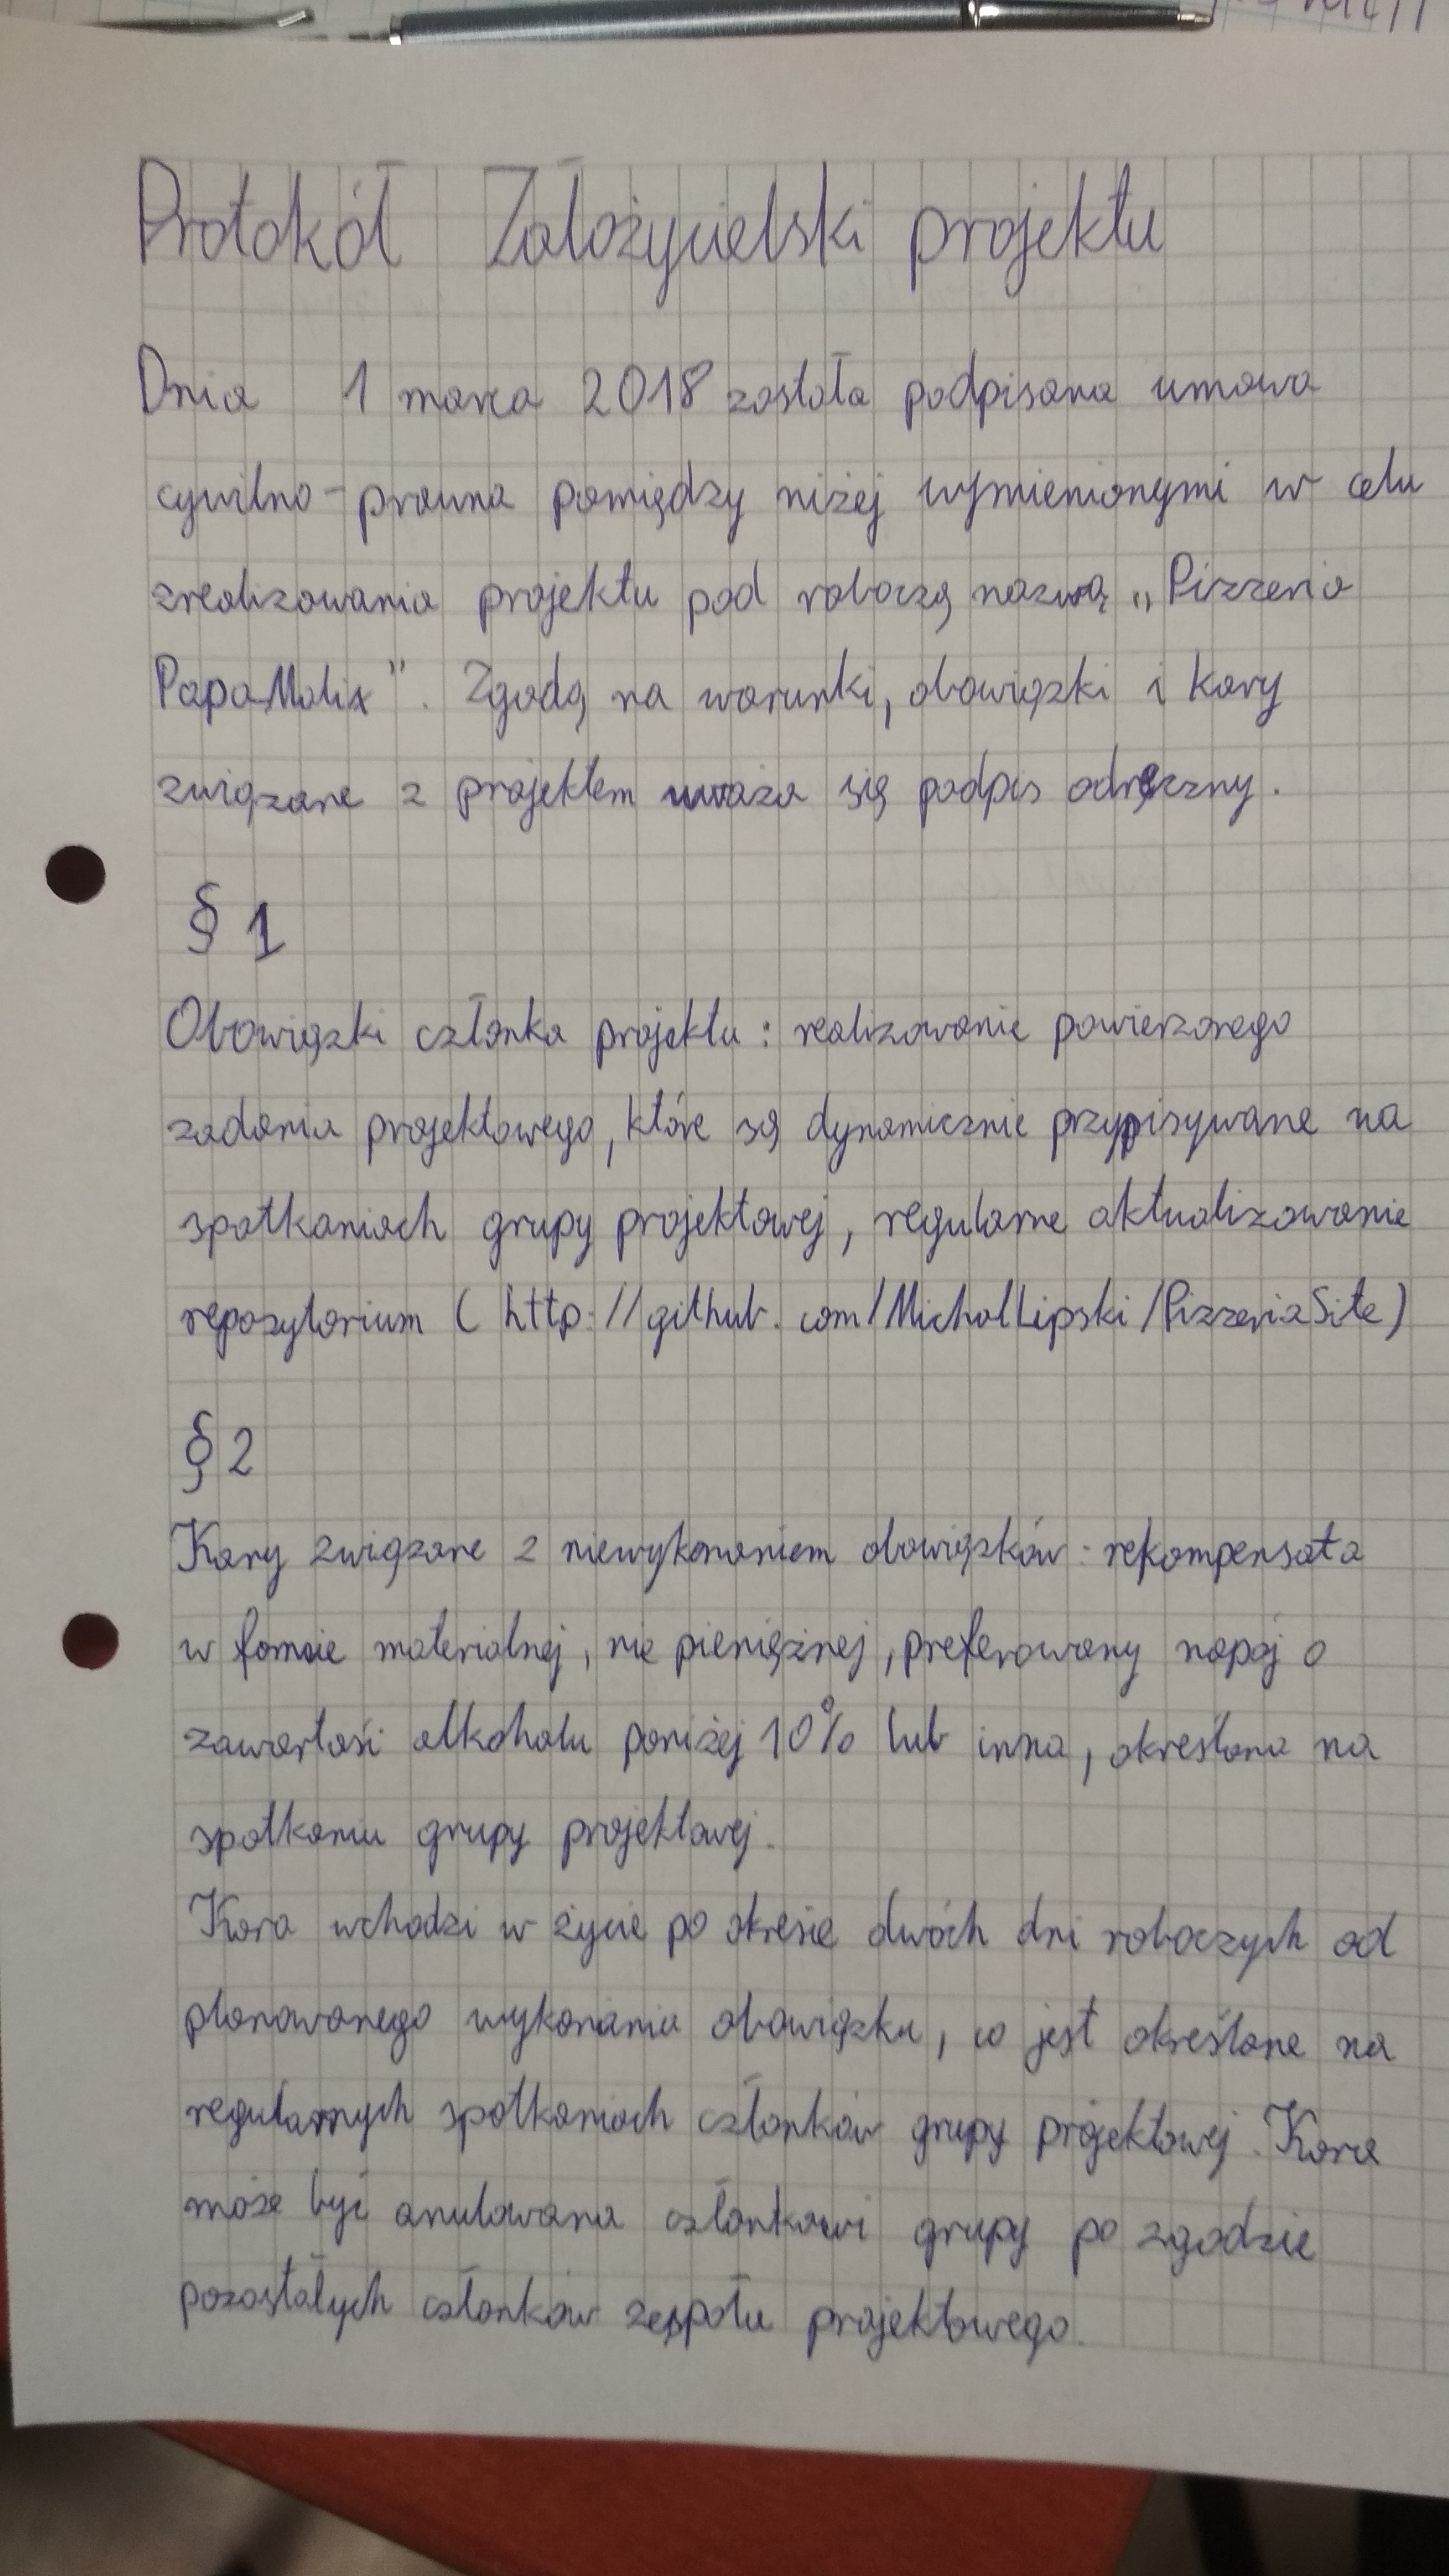 Protokół Założycielski projektu
Dnia 1 marca 2018 została podpisana umowa
cywilno-prawna pomiędzy niżej wymienionymi w celu
zrealizowania projektu pod roboczą nazwą „Pizzeria
PapaMalix". Zgodą na warunki, obowiązki i kary
związane z projektem uważa się podpis odręczny.
§ 1
Obowiązki członka projektu: realizowanie powierzonego
zadania projektowego, które są dynamicznie przypisywane na
spotkaniach grupy projektowej, regularne aktualizowanie
repozytorium (http://github.com/MichalLipski/PizzeriaSite)
§ 2
Kary związane z niewykonaniem obowiązków: rekompensata
w formie materialnej, nie pieniężnej, preferowany napój o
zawartości alkoholu poniżej 10% lub inna, określona na
spotkaniu grupy projektowej.
Kara wchodzi w życie po okresie dwóch dni roboczych od
planowanego wykonania obowiązku, co jest określone na
regularnych spotkaniach członków grupy projektowej. Kara
może być anulowana członkowi grupy po zgodzie
pozostałych członków zespołu projektowego.